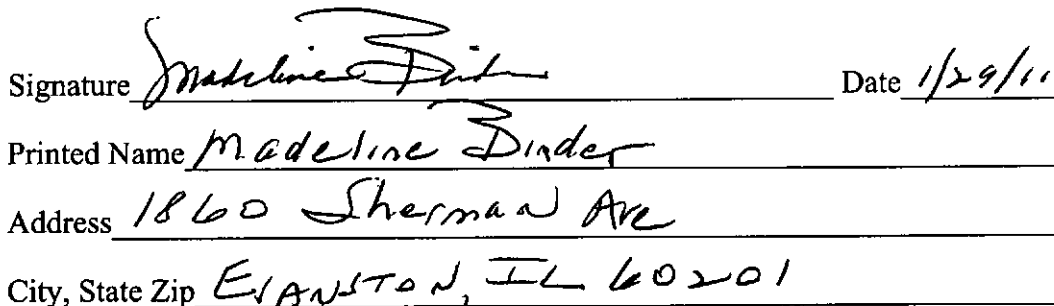 Signature Madeline Binder Date 1/29/11
Printed Name Madeline Binder
Address 1860 Sherman Ave
City, State Zip Evanston, IL 60201